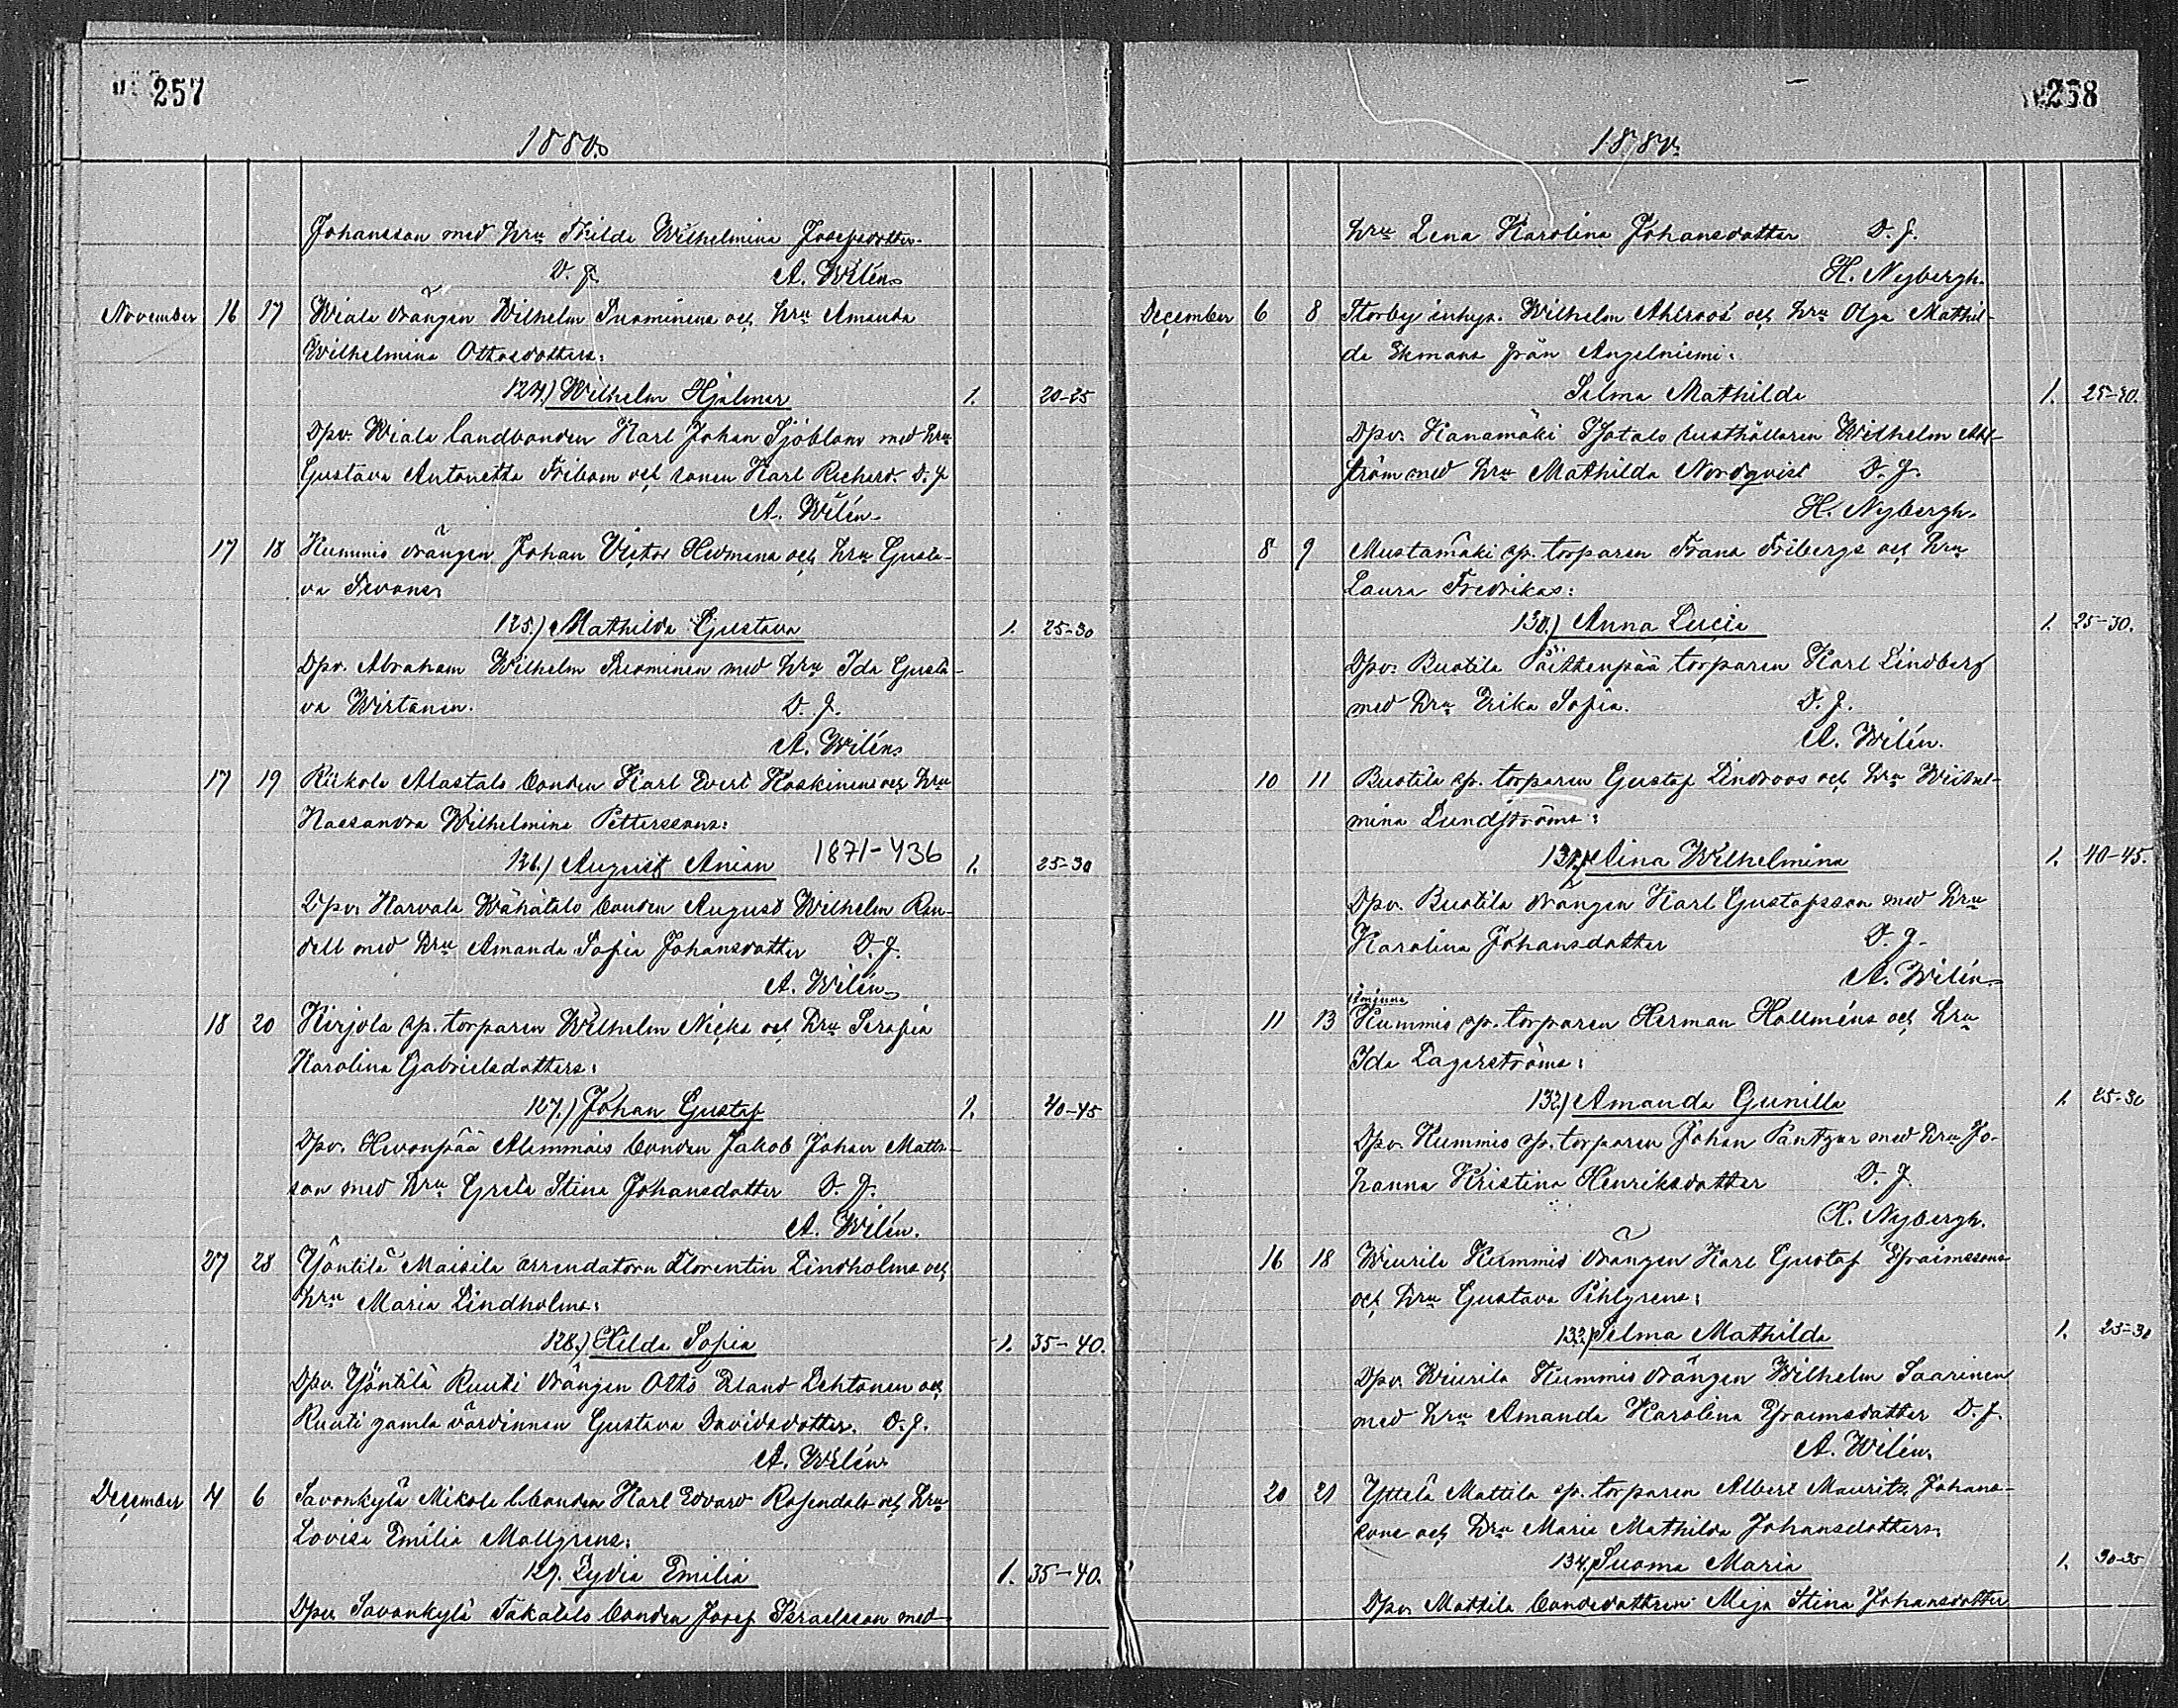 257
1880.
Johansson med hru Thilda Wilhelmina Josefsdotter.
D. J. A. Wilén
November 16 17 Wiala drängen Wilhelm Suominens och hru Amanda
Wilhelmina Ottosdotters:
124.) Wilhelm Hjalmar 1. 20-25
Dpv. Wiala landbonden Karl Johan Sjöblom med hru
Gustava Antonetta Fribom och sonen Karl Richard. D. J.
A. Wilén
17 18 Kummis drängen Johan Victor Hedmans och hru Gusta-
va
125.) Mathilda Gustava 1. 25-30
Dpv. Abraham Wilhelm Suominen med hru Ida Gusta-
va Wirtanen. D. J.
A. Wilén
17 19 Alastalo bonden Karl Evert Koskinens och hru
Kassandra Wilhelmina Petterssons:
126.) August Anian 1871-436 1. 25-30
Dpv. Karvala Wähätalo bonden August Wilhelm Ran-
dell med hru Amanda Sofia Johansdotter D. J.
A. Wilén
18 20 Kirjola sp. torparen Wilhelm och hru Serafia
Karolina Gabrielsdotters:
127.) Johan Gustaf 1. 40-45
Dpv. bonden Jakob Johan Matts-
son med hru Greta Stina Johansdotter D. J.
A. Wilén.
27 28 Yöntilä Maisila arrendatorn Florentin Lindholms och
hru Maria Lindholms:
128.) Hilda Sofia 1. 35-40.
Dpv. Yöntilä Ruuti drängen Otto Erland Lehtonen och
Ruuti gamla värdinnan Gustava Davidsdotter. D. J.
A. Wilén
December 4 6 Savonkylä Mikola bonden Karl Edvard Rosendals och hru
Lovisa Emilia Mallgrens:
129. Lydia Emilia 1. 35-40.
Dpv. Savonkylä bonden Josef Israelsson med
258
1880.
hru Lena Karolina Johansdotter D. J.
H. Nybergh.
December 6 8 Storby inhys. Wilhelm Ahlroos och hru Olga Mathil-
da Ekmans från Angelniemi:
Selma Mathilda 1. 25-30.
Dpv. Kanamäki rusthållaren Wilhelm Ahl-
ström med hru Mathilda Nordqvist D. J.
H. Nybergh.
8 9 Mustamäki sp. torparen Frans Fribergs och hru
Laura Fredrikas:
130.) Anna Lucia 1. 25-30.
Dpv. Buotila torparen Karl Lindberg
med hru Erika Sofia. D. J.
A. Wilén.
10 11 Buotila sp. torparen Gustaf Lindroos och hru Wilhel-
mina Lundströms:
131.) Aina Wilhelmina 1. 40-45.
Dpv. Buotila drängen Karl Gustafsson med hru
Karolina Johansdotter D. J.
A. Wilén
11 13 Kummis sp. torparen Herman Hallméns och hru
Ida Lagerströms:
132.) Amanda Gunilla 1. 25-30
Dpv. Kummis sp. torparen Johan Pantzar med hru Jo-
hanna Kristina Henriksdotter D. J.
H. Nybergh.
16 18 Wiurila Kummis drängen Karl Gustaf Efraimssons
och hru Gustava Pihlgrens:
133.) Selma Mathilda 1. 25-30
Dpv. Wiurila Kummis drängen Wilhelm Saarinen
med hru Amanda Karolina Efraimsdotter D. J.
A. Wilén.
20 21 Yttelä Mattila sp. torparen Albert Maurits Johans-
sons och hru Maria Mathilda Johansdotters:
134. Suoma Maria 1. 30-35
Dpv. Mattila bondedottren Maja Stina Johansdotter